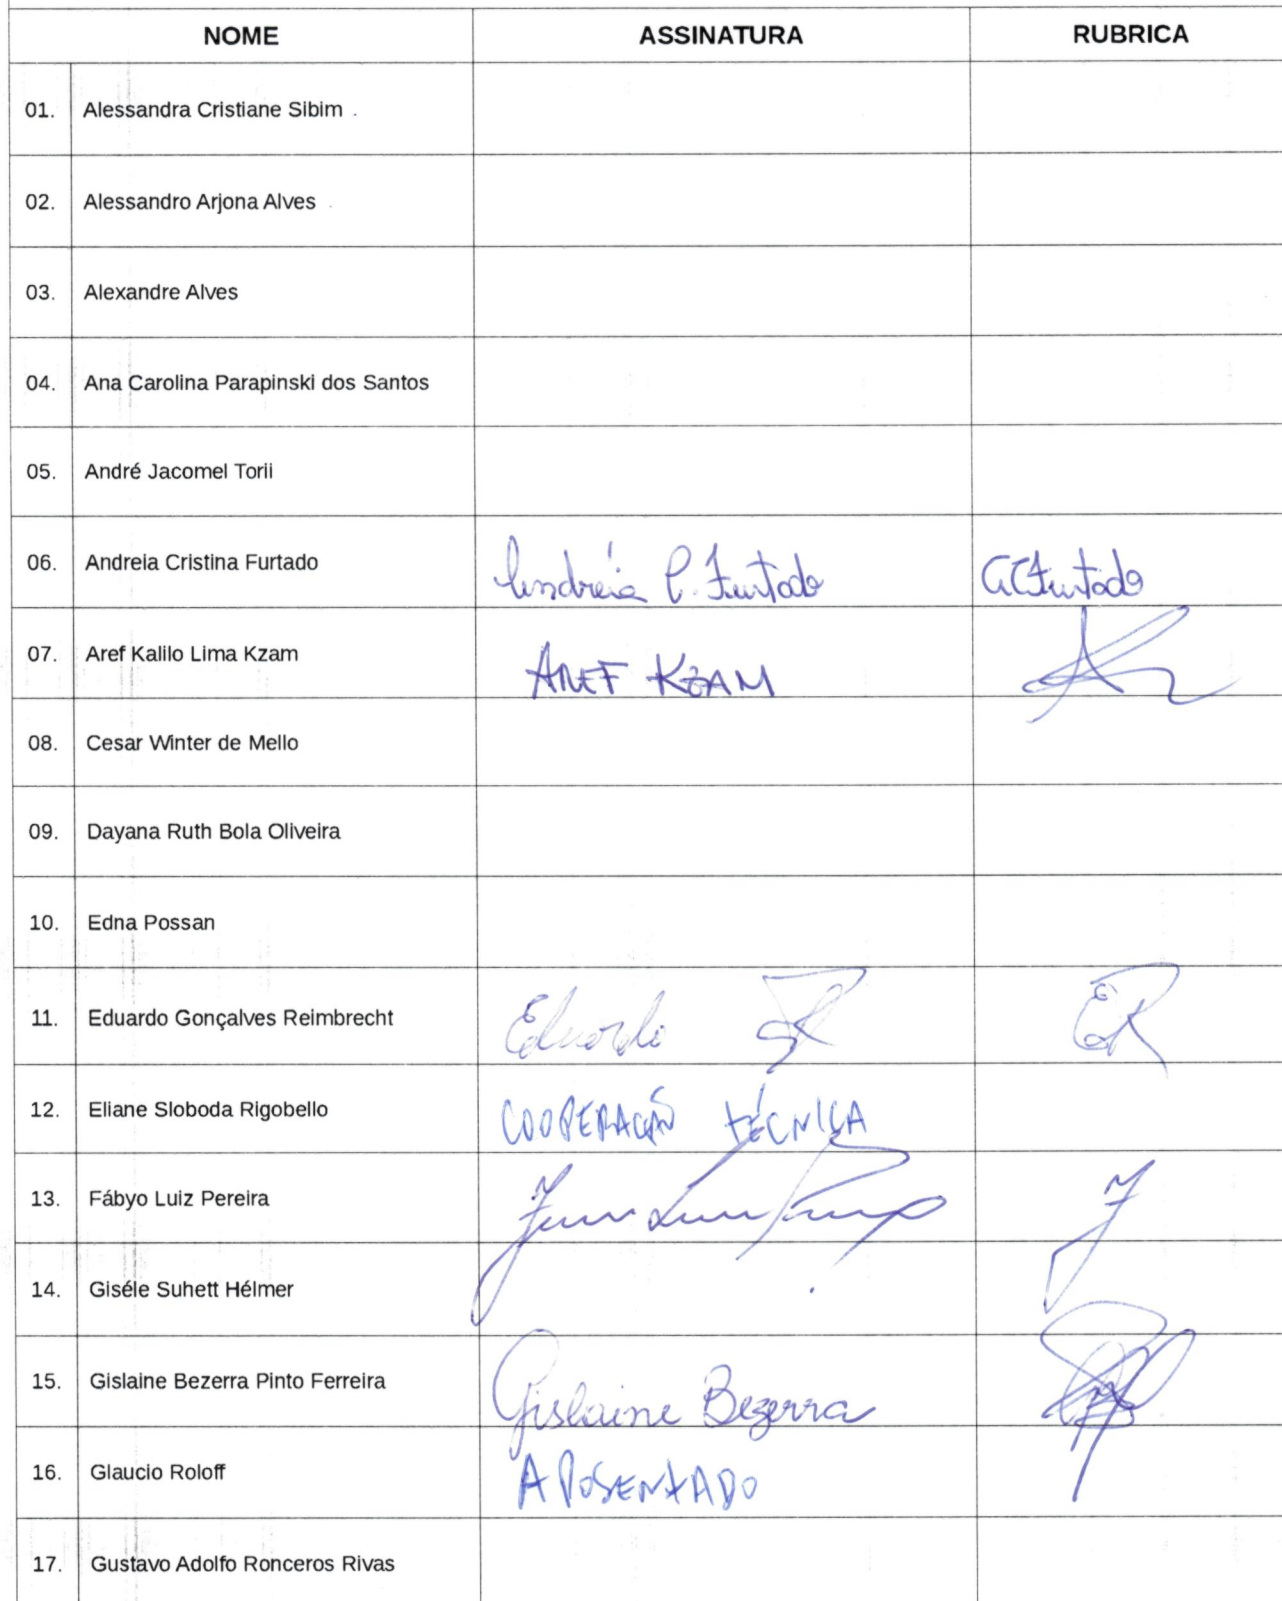 NOME ASSINATURA RUBRICA
01. Alessandra Cristiane Sibim
02. Alessandro Arjona Alves
03. Alexandre Alves
04. Ana Carolina Parapinski dos Santos
05. André Jacomel Torii
06. Andreia Cristina Furtado Andreia C. Furtado ACFurtado
07. Aref Kalilo Lima Kzam AREF KZAM
08. Cesar Winter de Mello
09. Dayana Ruth Bola Oliveira
10. Edna Possan
11. Eduardo Gonçalves Reimbrecht Eduardo ER
12. Eliane Sloboda Rigobello COOPERAÇÃO TÉCNICA
13. Fábyo Luiz Pereira
14. Giséle Suhett Hélmer
15. Gislaine Bezerra Pinto Ferreira Gislaine Bezerra
16. Glaucio Roloff APOSENTADO
17. Gustavo Adolfo Ronceros Rivas